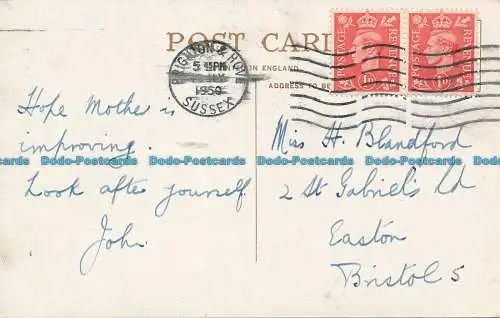 POST CARD
BRIGHTON & HOVE
1950
SUSSEX
POSTAGE REVENUE
1D
POSTAGE REVENUE
1D
IN ENGLAND.
ADDRESS TO BE
Hope Mother is
improving.
Look after yourself
John.
Miss H. Blandford
2 St Gabriel's Rd
Easton
Bristol 5
Dodo-Postcards Dodo-Postcards Dodo-Postcards Dodo-Postcards Dodo-Postcards